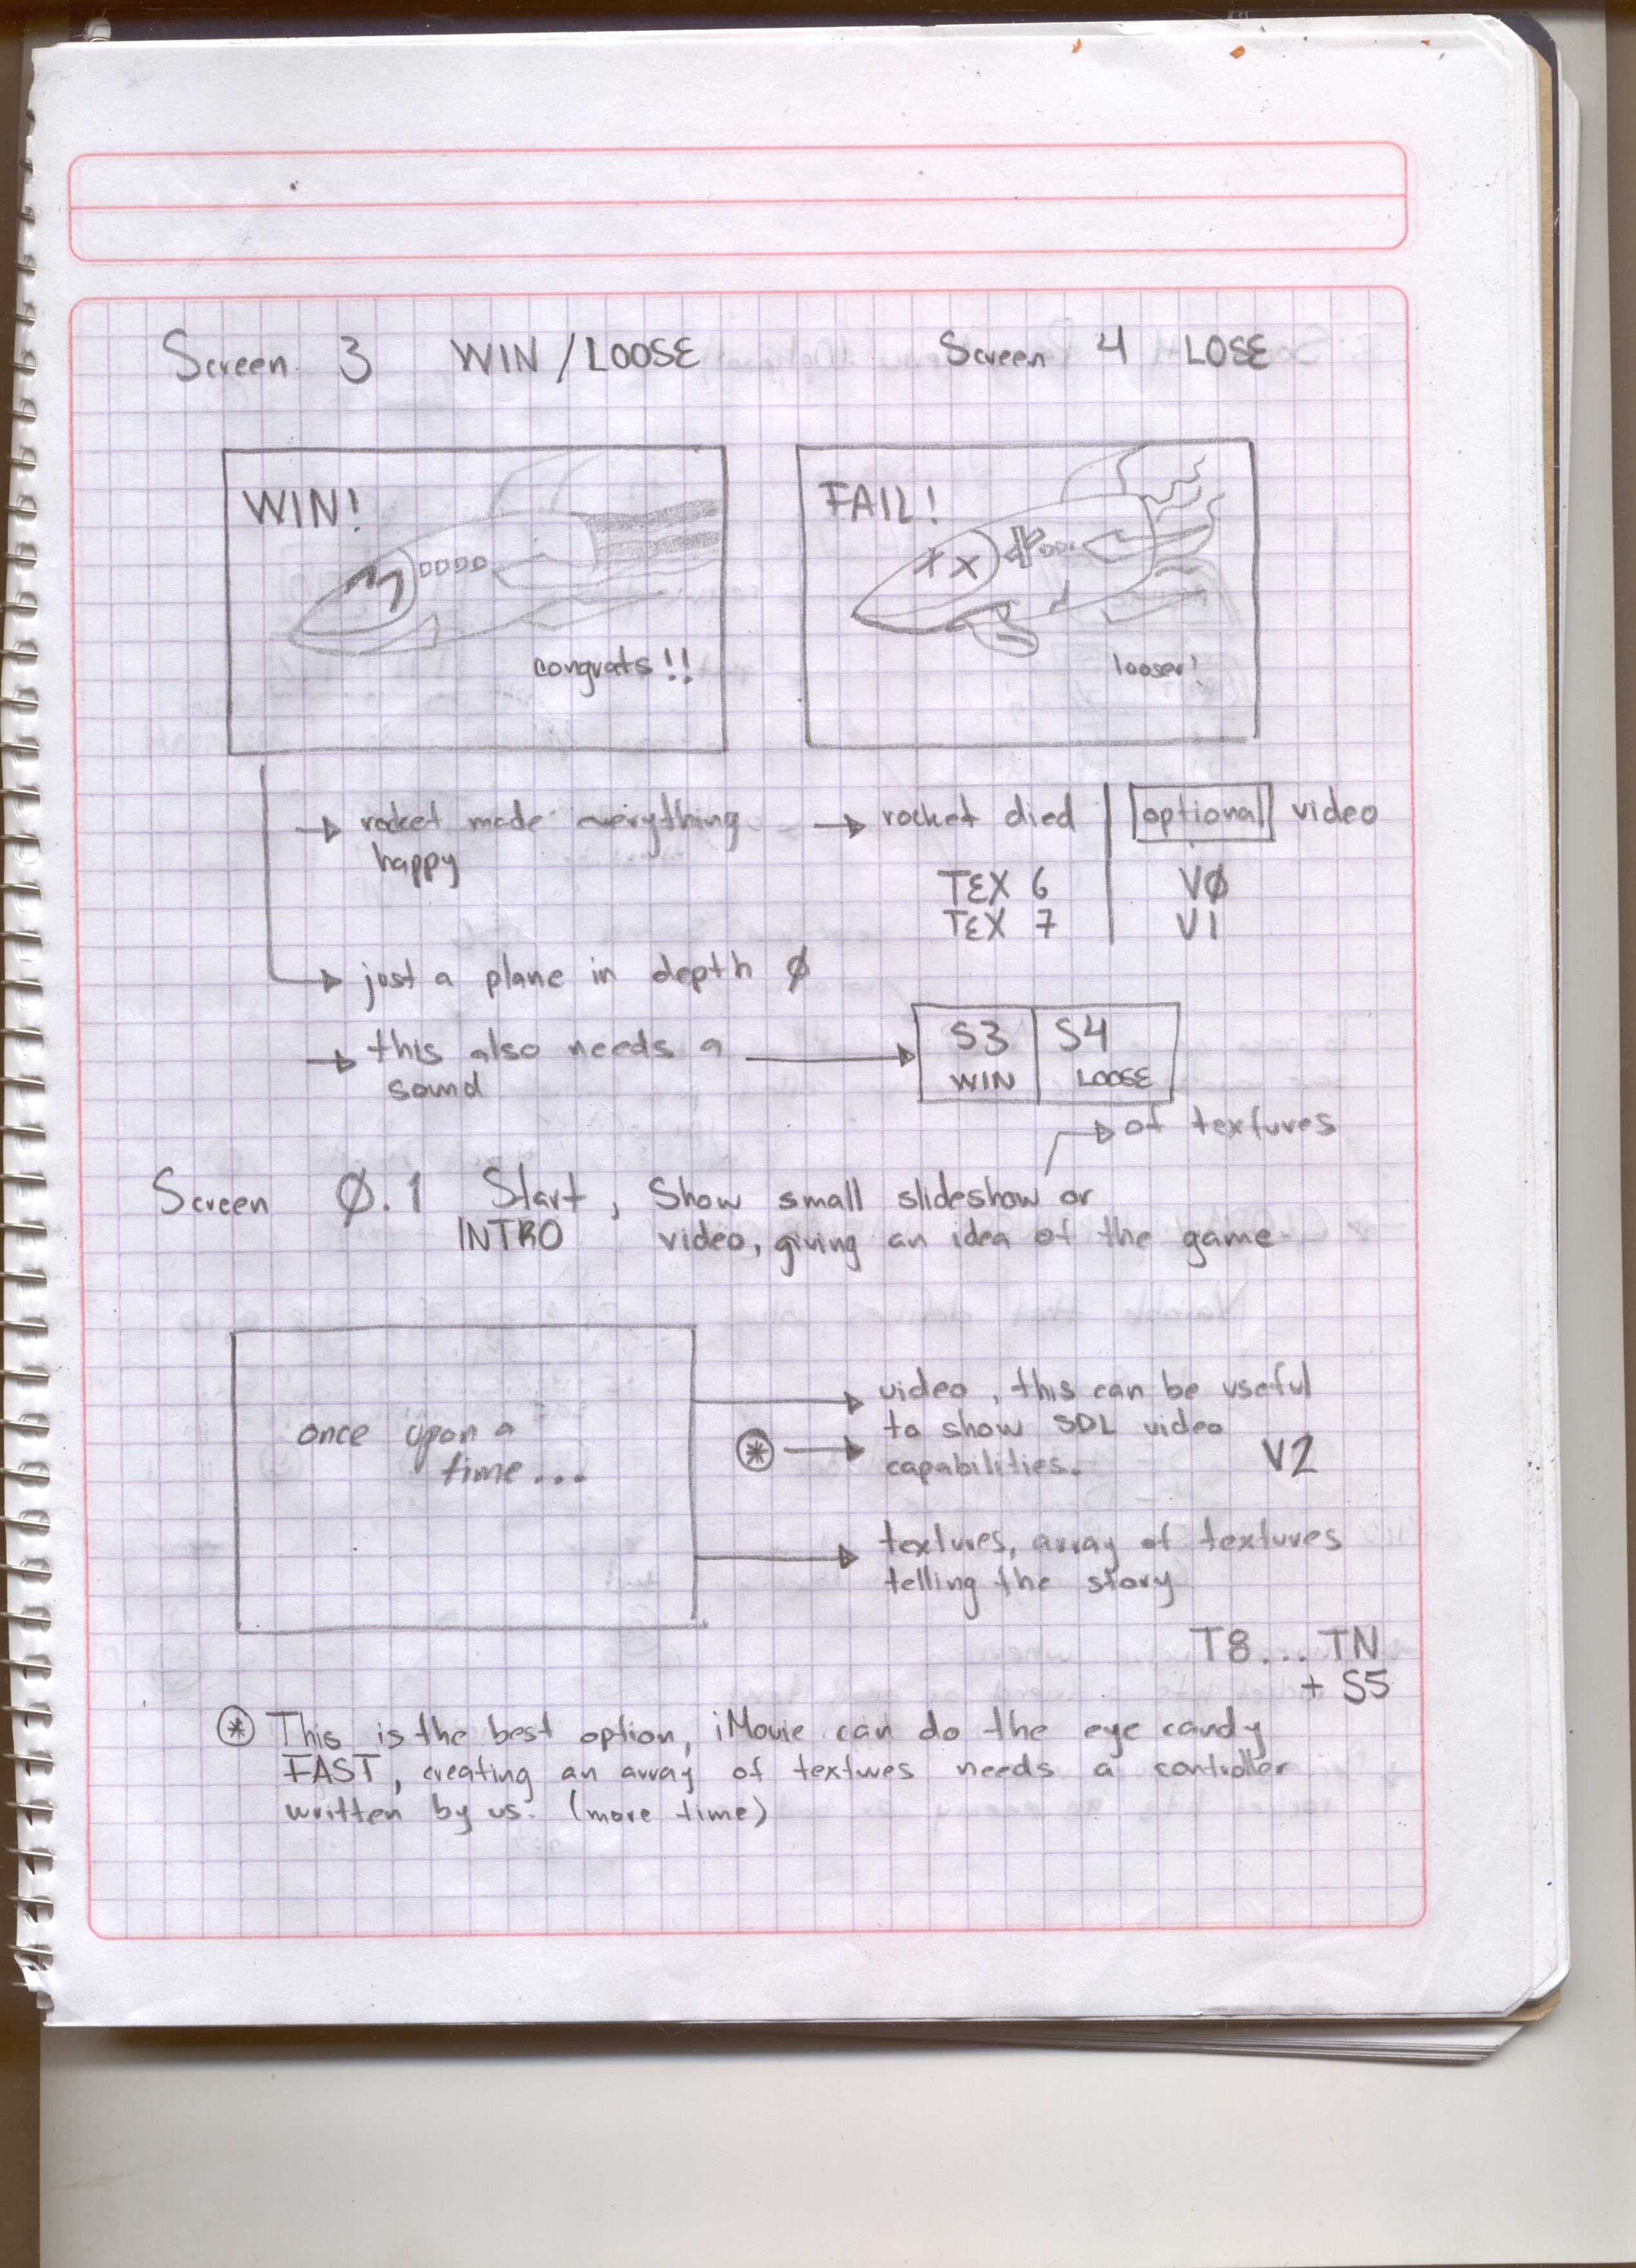 Screen 3 WIN/LOOSE
Screen 4 LOSE
WIN!
congrats!!
FAIL!
looser!
rocket made everything
happy
rocket died
optional video
TEX 6
VØ
TEX 7
V1
just a plane in depth Ø
this also needs a
sound
S3
WIN
S4
LOOSE
of textures
Screen Ø.1 Start, Show small slideshow or
INTRO video, giving an idea of the game
once upon a
time...
video, this can be useful
to show SDL video
capabilities.
V2
textures, array of textures
telling the story
T8... TN
+ S5
* This is the best option, iMovie can do the eye candy
FAST, creating an array of textures needs a controller
written by us. (more time)